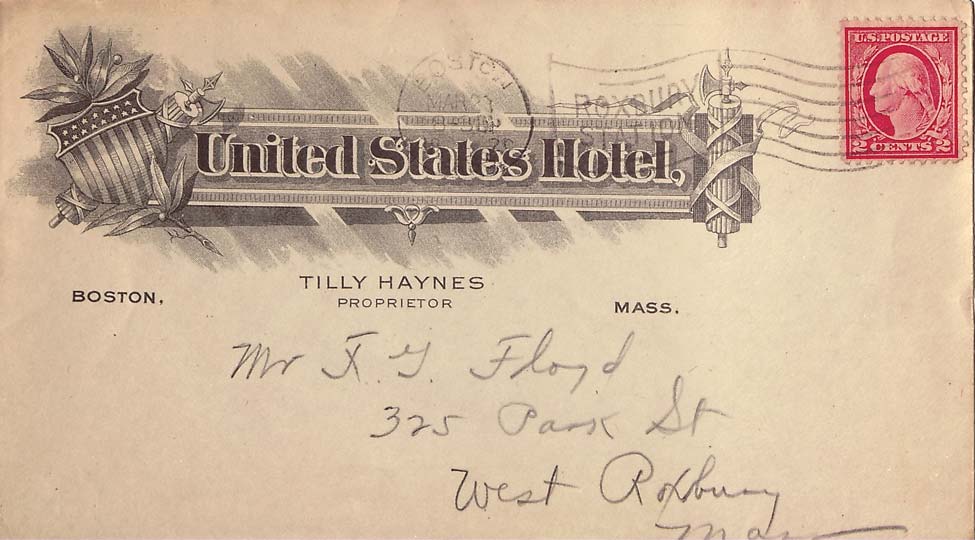 United States Hotel,
BOSTON
MAR 23
ROXBURY
STATION
U.S. POSTAGE
2 CENTS 2
TILLY HAYNES
PROPRIETOR
BOSTON,
MASS.
Mr F. G. Floyd
325 Park St
West Roxbury
Mass